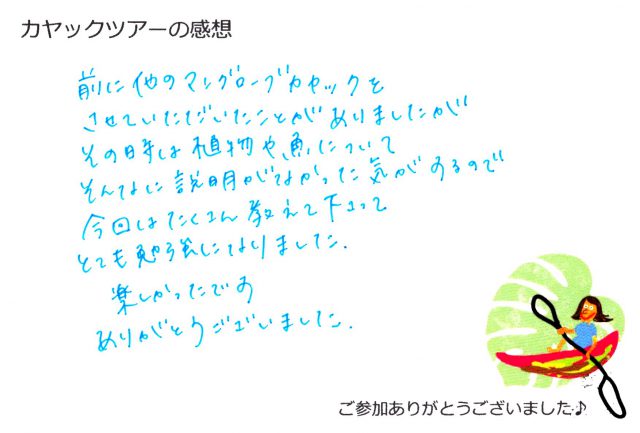 カヤックツアーの感想
前に他のマングローブカヤックを
させていただいたことがありましたが
その時は植物や魚について
そんなに説明がなかった気がするので
今回はたくさん教えて下さって
とても勉強になりました.
楽しかったです
ありがとうございました.
ご参加ありがとうございました♪